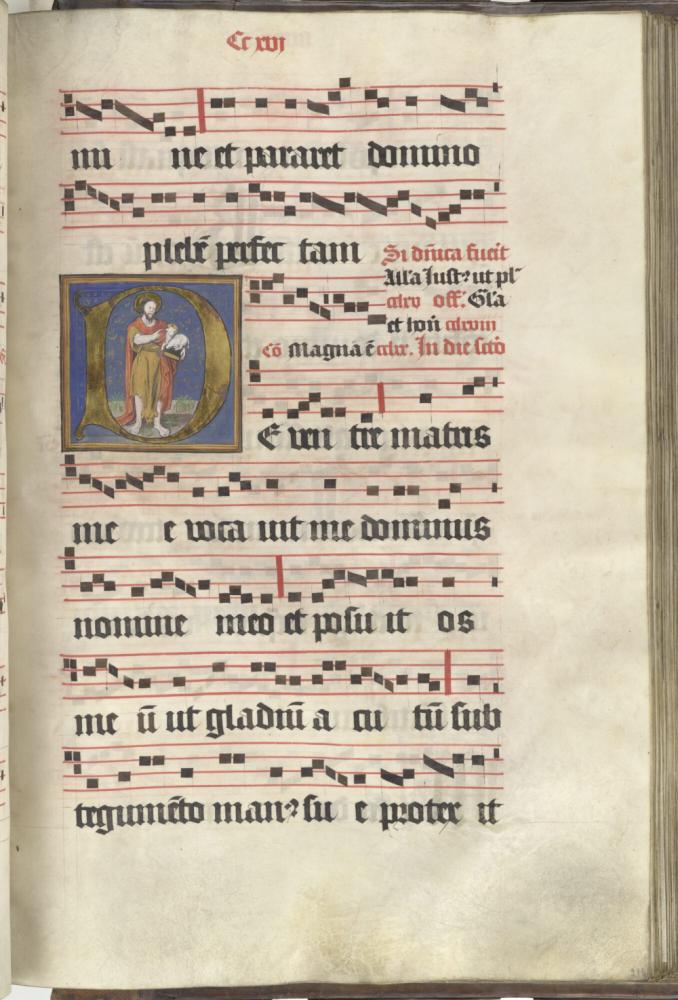 Cc xvj
mi ne et pararet domino
plebē perfec tam Si dñica fuerit
Alľa Just⁹ ut pľ
off. Gľa
et hoñ
Cō Magna ē In die
D E ven tre matris
me e voca uit me dominus
nomine meo et posu it os
me ū ut gladiū a cu tū sub
tegumēto man⁹ su e protex it